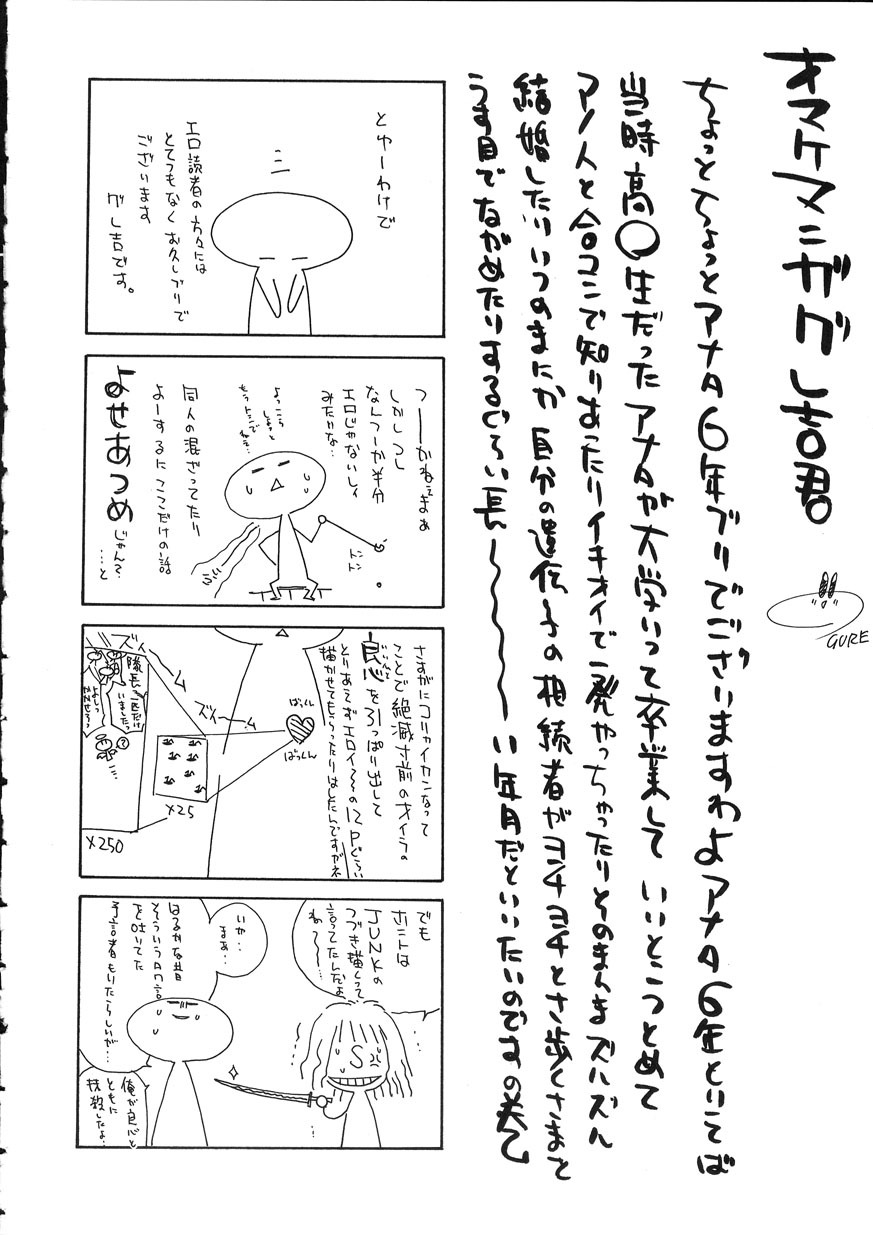 オマケマンガグレ吉君
GURE
ちょっとちょっとアナタ6年ブリでございますわよアナタ6年といてば
当時高〇生だったアナタが大学いって卒業していいとこつとめて
アノ人と合コンで知りあったりイキオイで一発やっちゃったりとそのまんまズルズル
結婚したりいつのまにか自分の遺伝子の相続者がヨチヨチとさ歩くさまを
うす目でながめたりするぐらい長〜〜〜〜い年月だといいたいのですの巻
とゆーわけで
エロ読者の方々には
とてつもなくお久しブリで
ございます
グレ吉です。
つーかねぇまぁ
しかしつし
なんつーか半分
エロじゃないしィ
みたいな…
よっこら
しょっと
トントン
同人の混ざってたり
よーするにここだけの話
よせあつめ
じゃん?
…と
さすがにコリャイカンなって
ことで絶滅寸前のオイラの
良心を引っぱり出して
とりあえずエロイ〜の12Pぐらい
描かせてもらったりはしたんですがネ
ばっくん
ばっくん
ズイーーム
ズイーム
×25
×250
隊長一匹だけ
いましたっ
でも
ホントは
JUNKの
つづき描くって
言ってたんだよ
ね〜〜…
S
いや‥
まぁ‥
はるかな昔
そういうタワ言
を吐いてた
予言者もいたらしいが…
俺が良心と
ともに
抹殺したよ‥